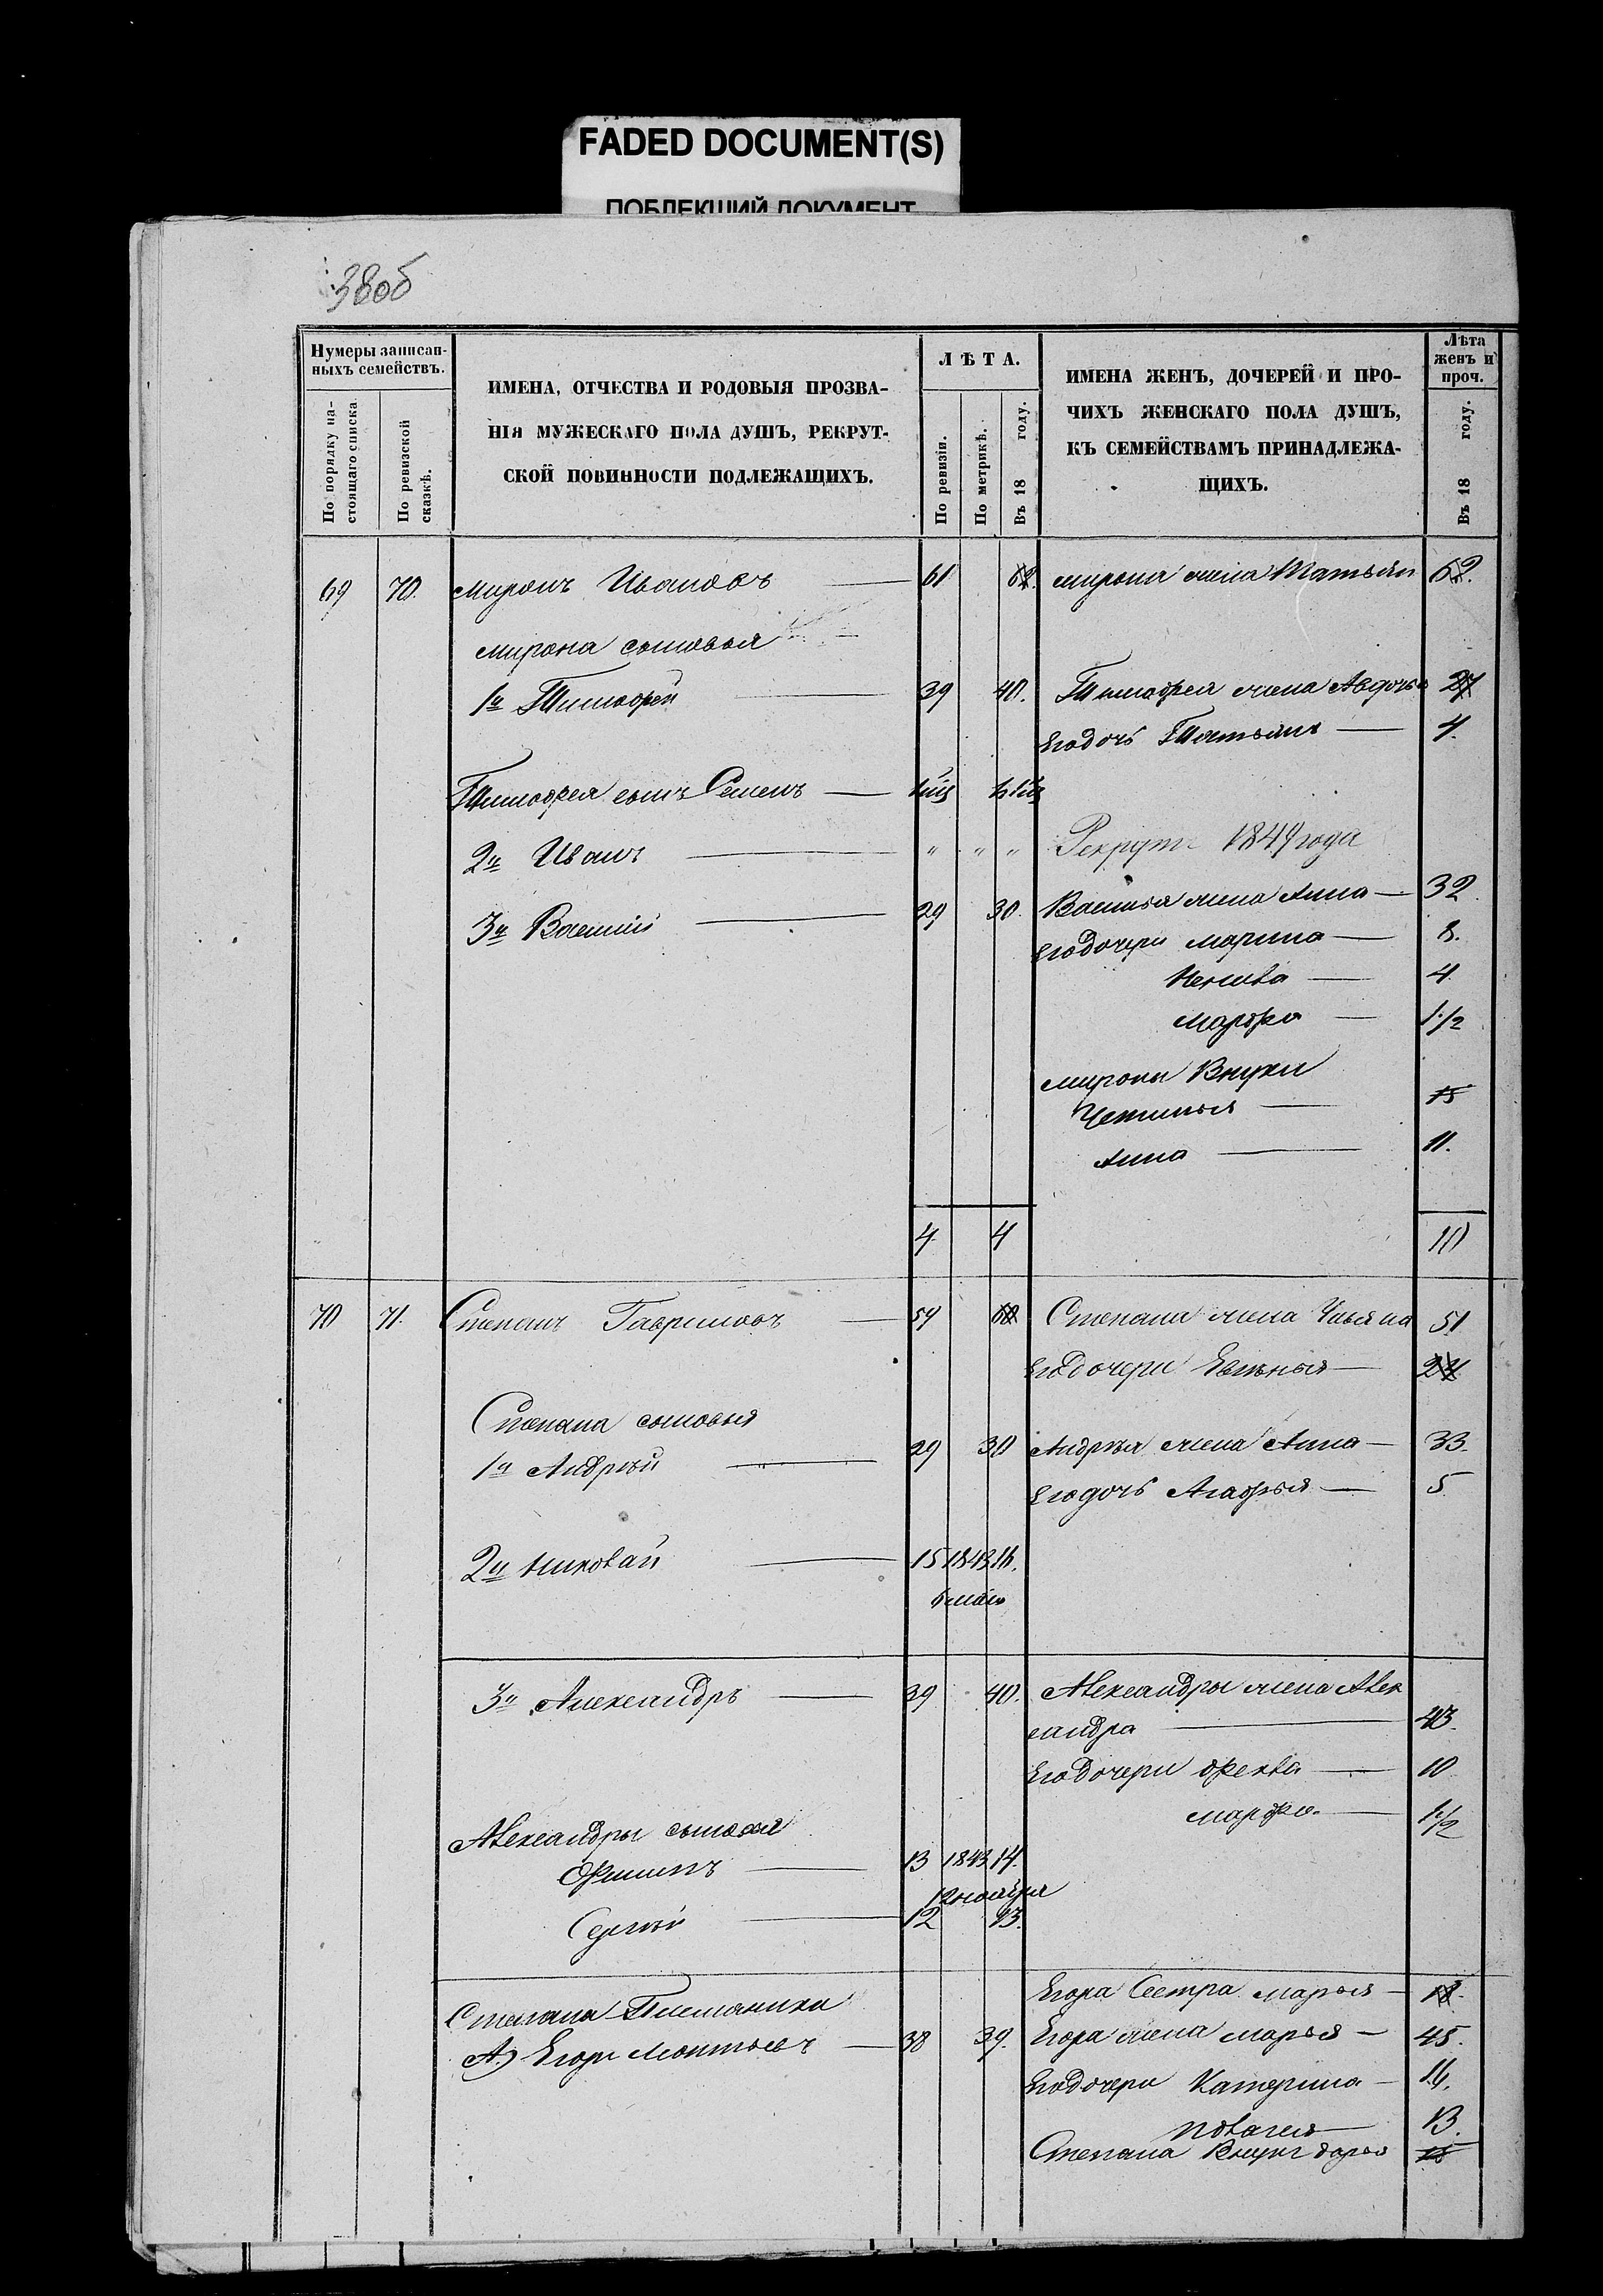 FADED DOCUMENT(S)
ПОБЛЕКШИЙ ДОКУМЕНТ
38об
Нумеры записан-
ныхъ семействъ.
По порядку на-
стоящаго списка
По ревизской
сказкѣ.
ИМЕНА, ОТЧЕСТВА И РОДОВЫЯ ПРОЗВА-
НІЯ МУЖЕСКАГО ПОЛА ДУШЪ, РЕКРУТ-
СКОЙ ПОВИННОСТИ ПОДЛЕЖАЩИХЪ.
ЛѢТА.
По ревизіи.
По метрикѣ.
Въ 18 году.
ИМЕНА ЖЕНЪ, ДОЧЕРЕЙ И ПРО-
ЧИХЪ ЖЕНСКАГО ПОЛА ДУШЪ,
КЪ СЕМЕЙСТВАМЪ ПРИНАДЛЕЖА-
ЩИХЪ.
Лѣта
женъ и
проч.
Въ 18 году.
69 70. Миронъ Ивановъ 61 62. Мирона жена Татьяна 62.
Мирона сыновья
1й Тимофей 39 40. Тимофея жена Авдотья 27
Его дочь Татьяна 4.
Тимофея сынъ Семенъ
2й Иванъ " " " Рекрутъ 1849 года
3й Василій 29 30. Василья жена Анна 32.
Его дочери Марина 8.
4.
Марфа 1 1/2
Мирона Внуки
Устинья 15
Анна 11.
4 4 10
70 71. Степанъ Гавриловъ 59 60 Степана жена Ульяна 51
Его дочери 24
Степана сыновья
1й Андрей 29 30 Андрея жена Анна 33.
Его дочь Агафья 5
2й Николай 15 1843 16.
6 мая
3й Александръ 39 40. Александры жена Алек
сандра 43.
Его дочери Фекла 10
Марфа 1 1/2
Александры сыновья
Филипъ 13 1843 14.
12 ноября
Сергей 12 13.
Егора Сестра Марья 18.
Степана Племяники
А) Егоръ 38 39. Егора жена Марья 45.
Его дочери Катерина 16.
Пелагея 13.
Степана Внука Дарья 15